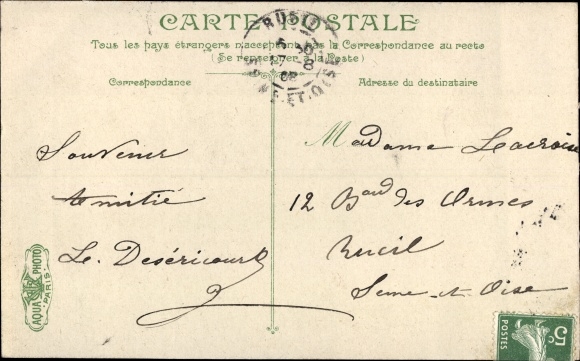 CARTE POSTALE
Tous les pays étrangers n'acceptent pas la Correspondance au recto
(Se renseigner à la Poste)
Correspondance
Adresse du destinataire
Souvenir
Amitié
Le Deséricourt
Madame Lacroix
12 Bard des Ormes
Rueil
Seine-et-Oise
AQUA PHOTO
PARIS
RUEIL
SEINE-ET-OISE
5c